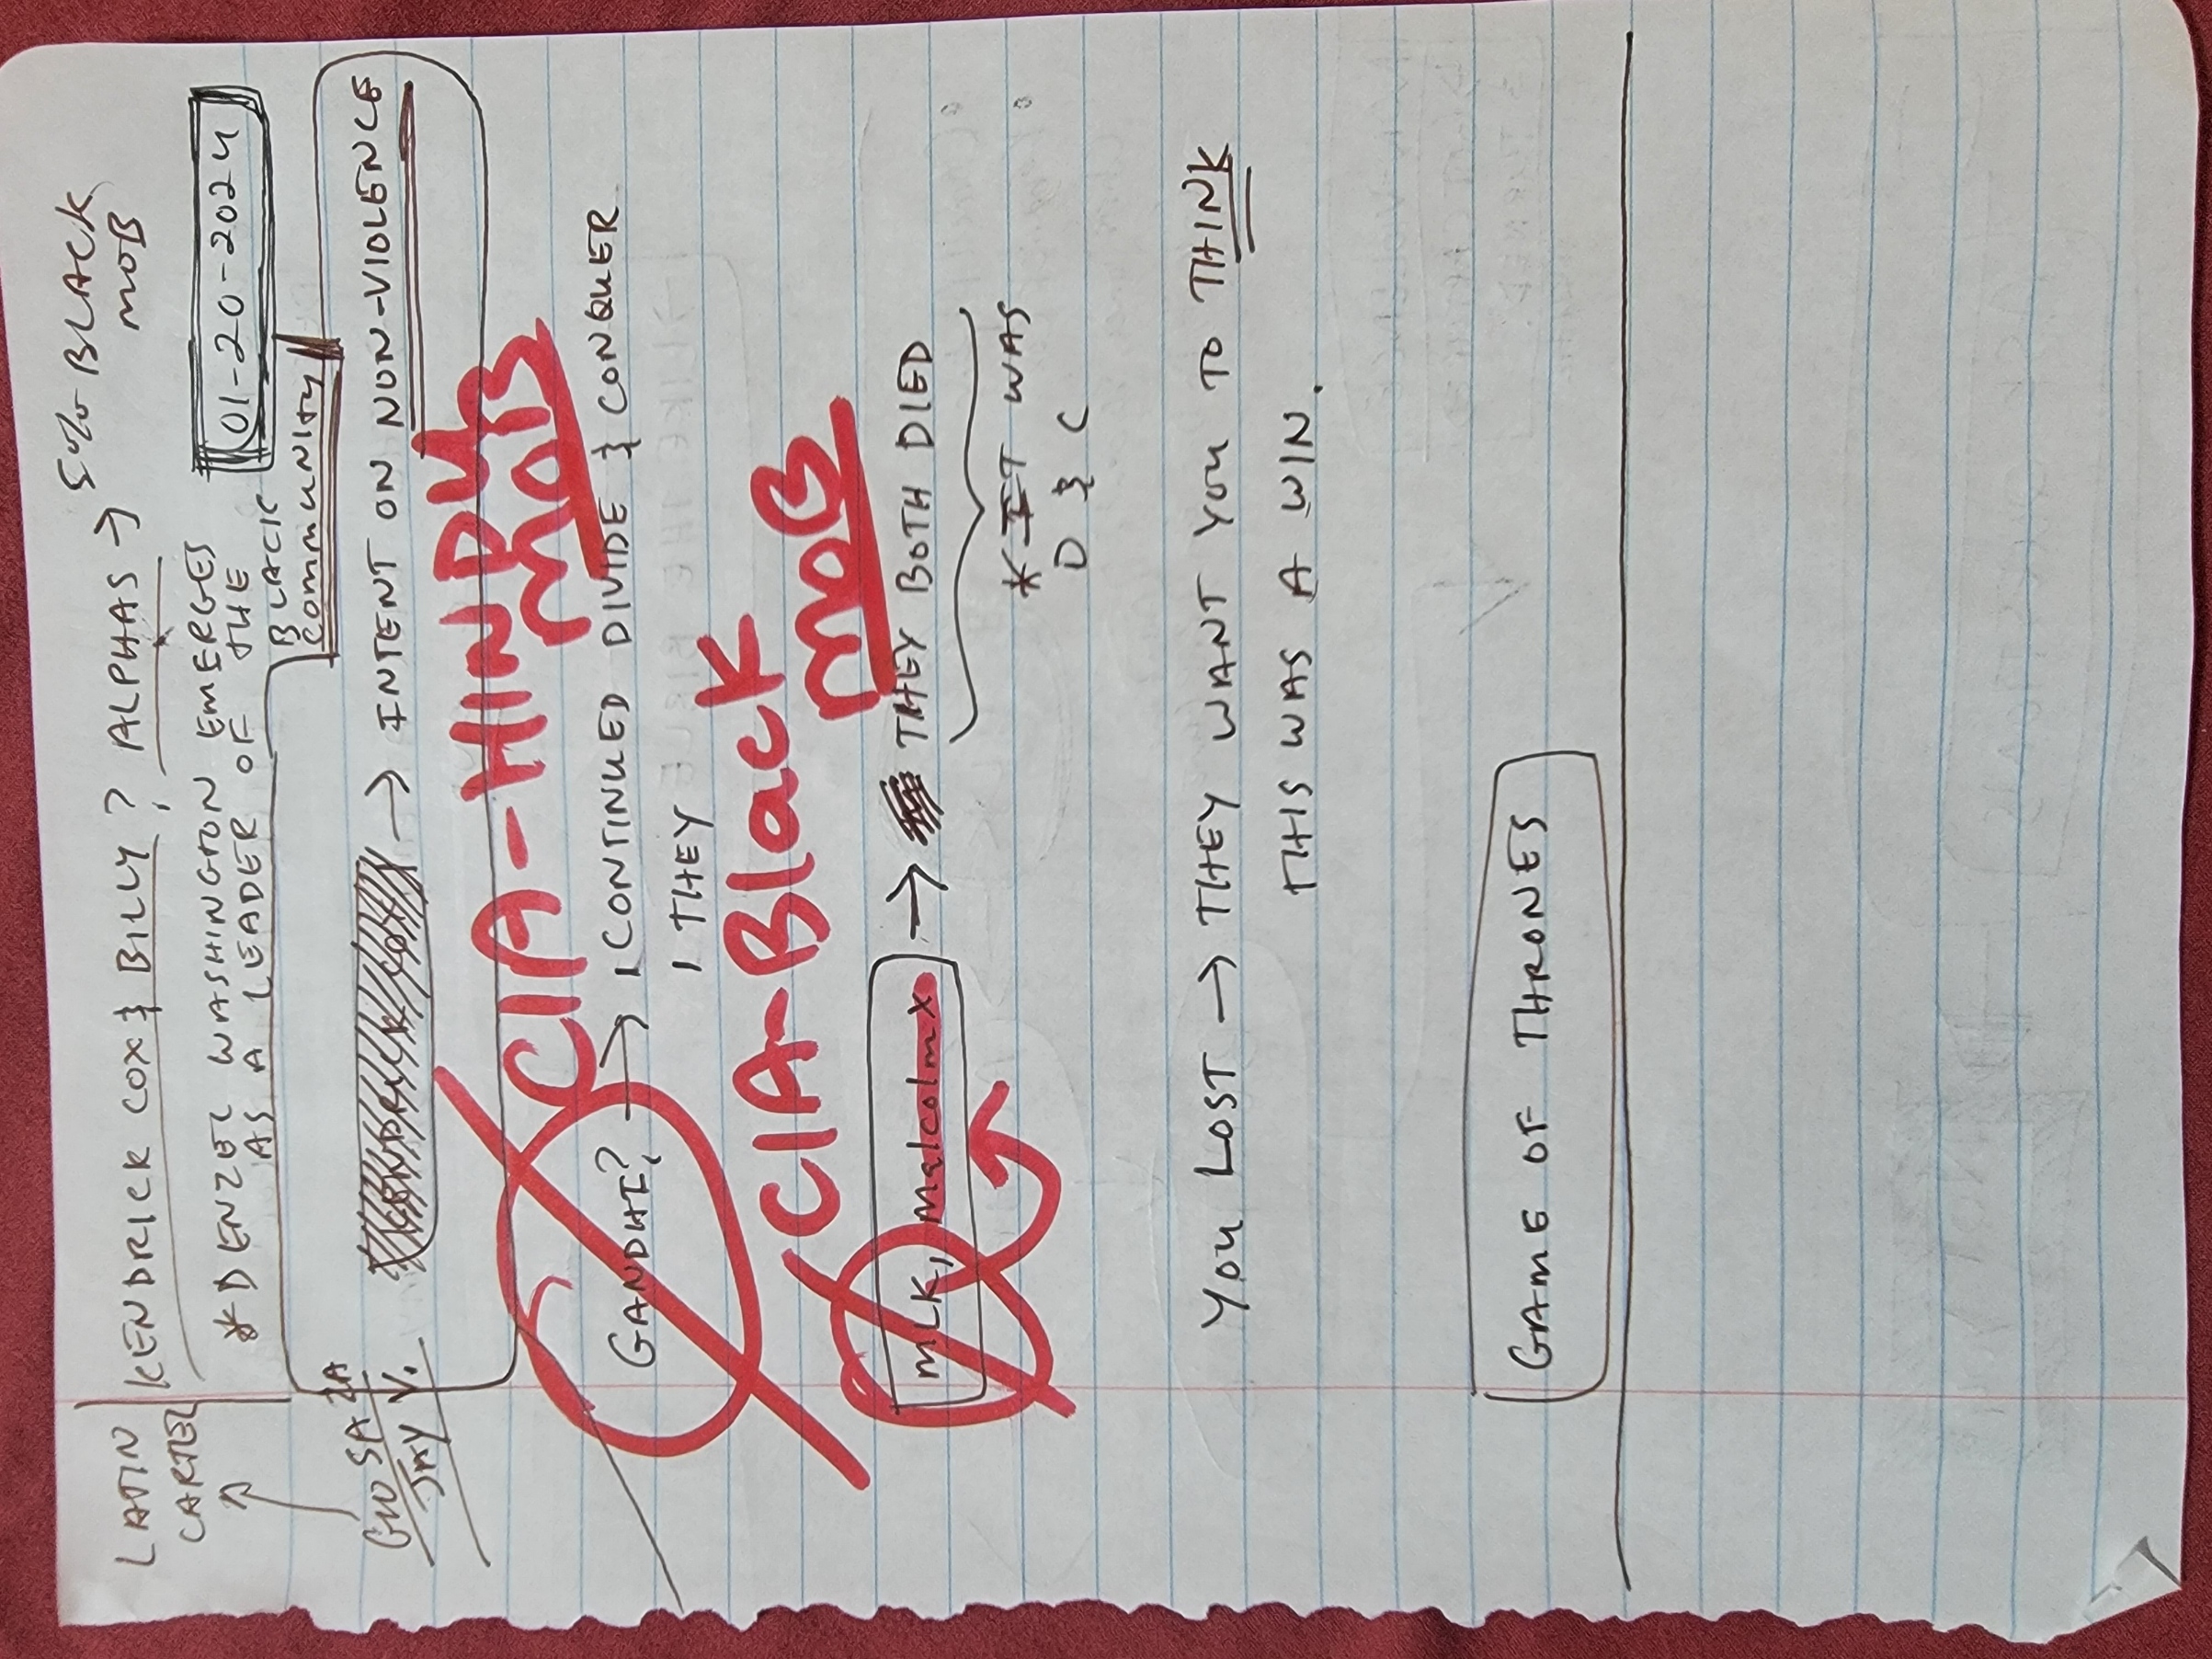 LATIN
CARTEL
GIO SAZA
JAY V.
KENDRICK COX & BILLY? ALPHAS → 5% BLACK
MOB
* DENZEL WASHINGTON EMERGES
AS A LEADER OF THE
BLACK
COMMUNITY
01-20-2024
KENDRICK COX → INTENT ON NON-VIOLENCE
CIA-HINDU
MOB
GANDHI? → CONTINUED DIVIDE & CONQUER
THEY
CIA-Black
MOB
MLK, Malcolm X → THEY BOTH DIED
* IT WAS
D & C
YOU LOST → THEY WANT YOU TO THINK
THIS WAS A WIN.
GAME OF THRONES